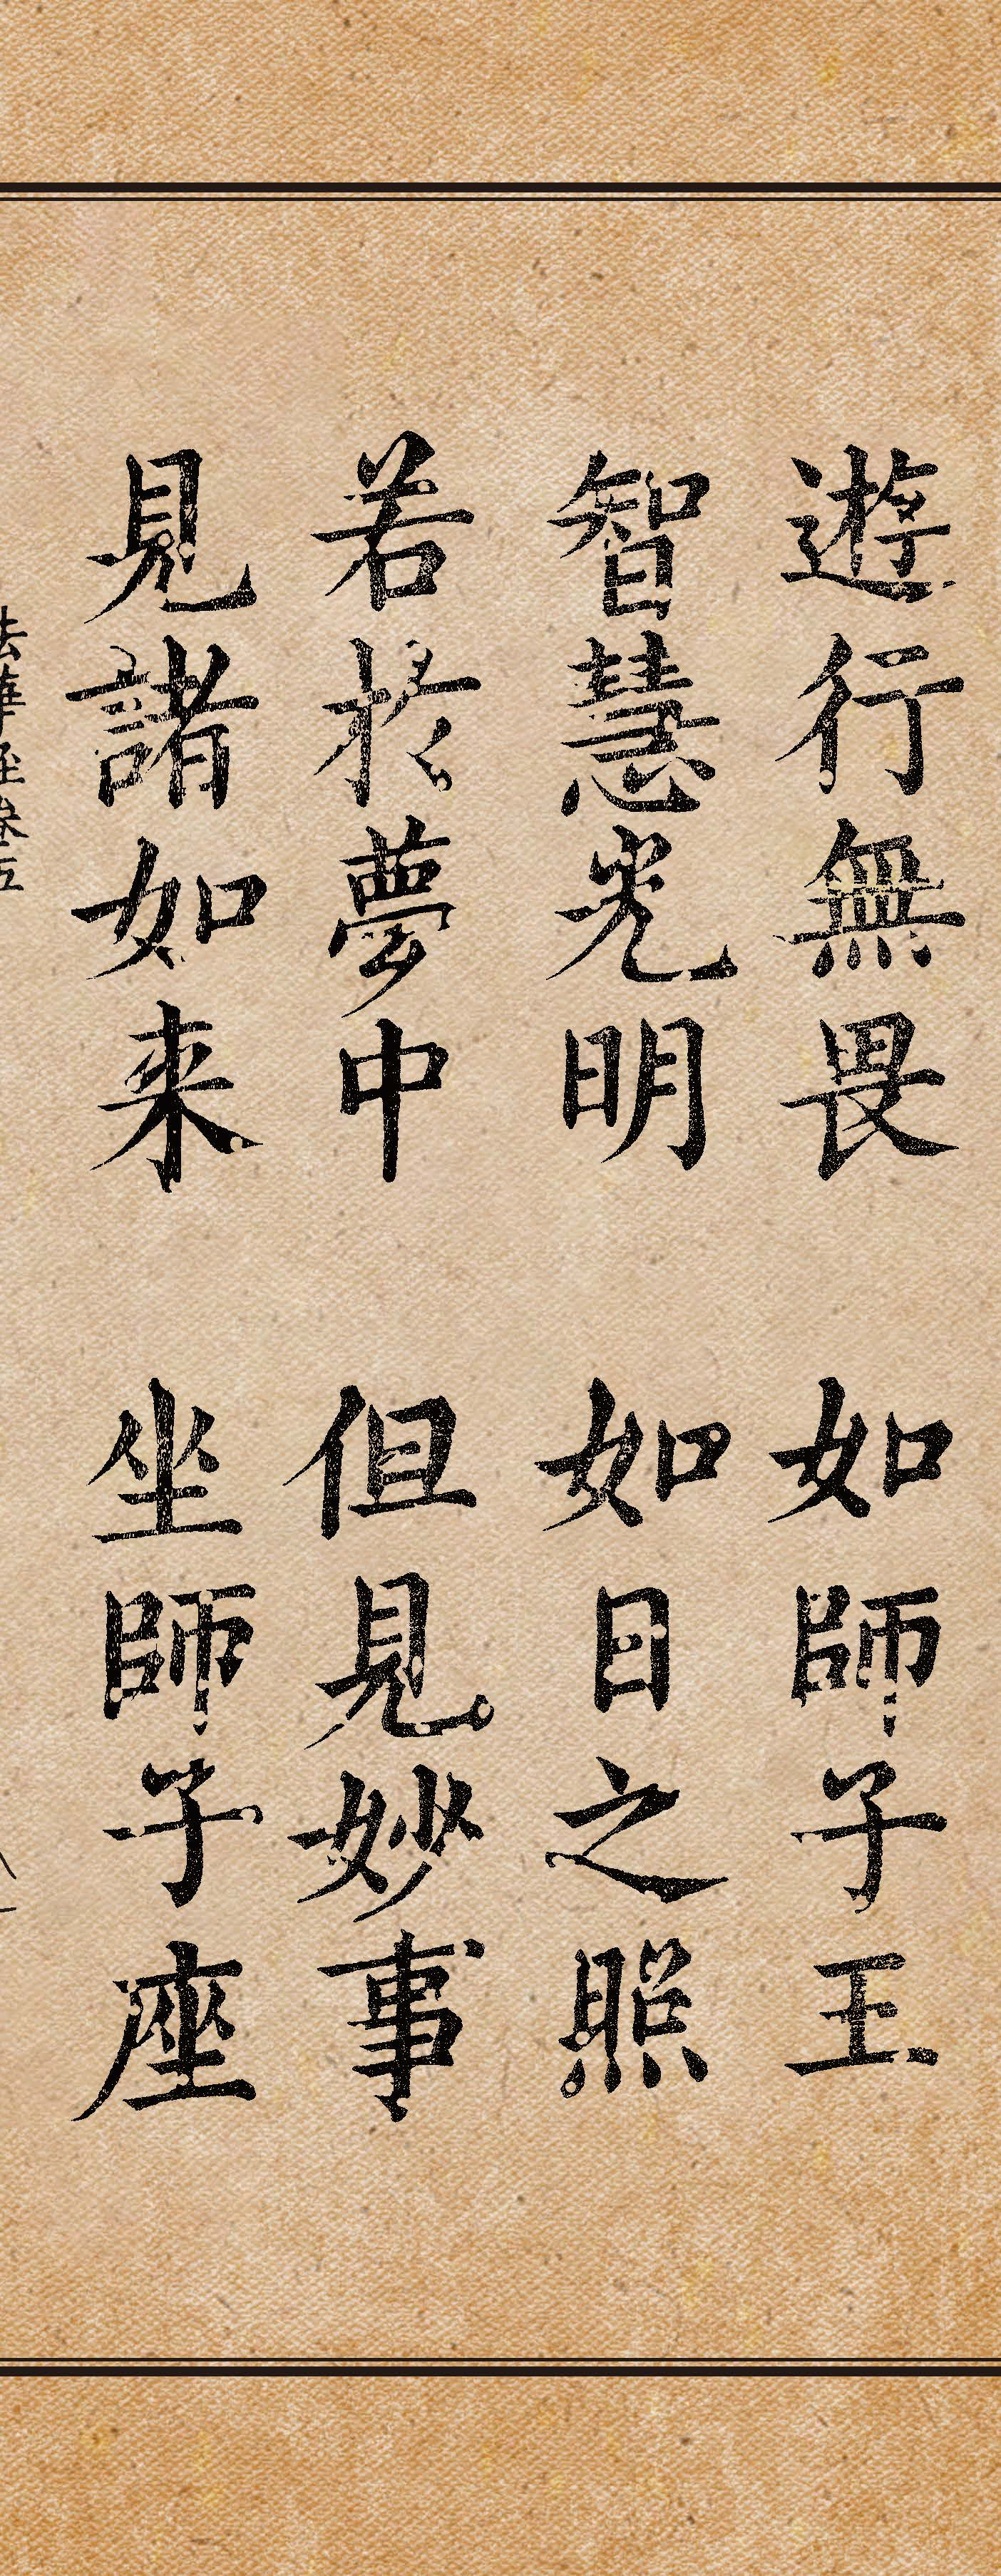 遊行無畏 如師子王
智慧光明 如日之照
若於夢中 但見妙事
見諸如来 坐師子座
法華経巻五